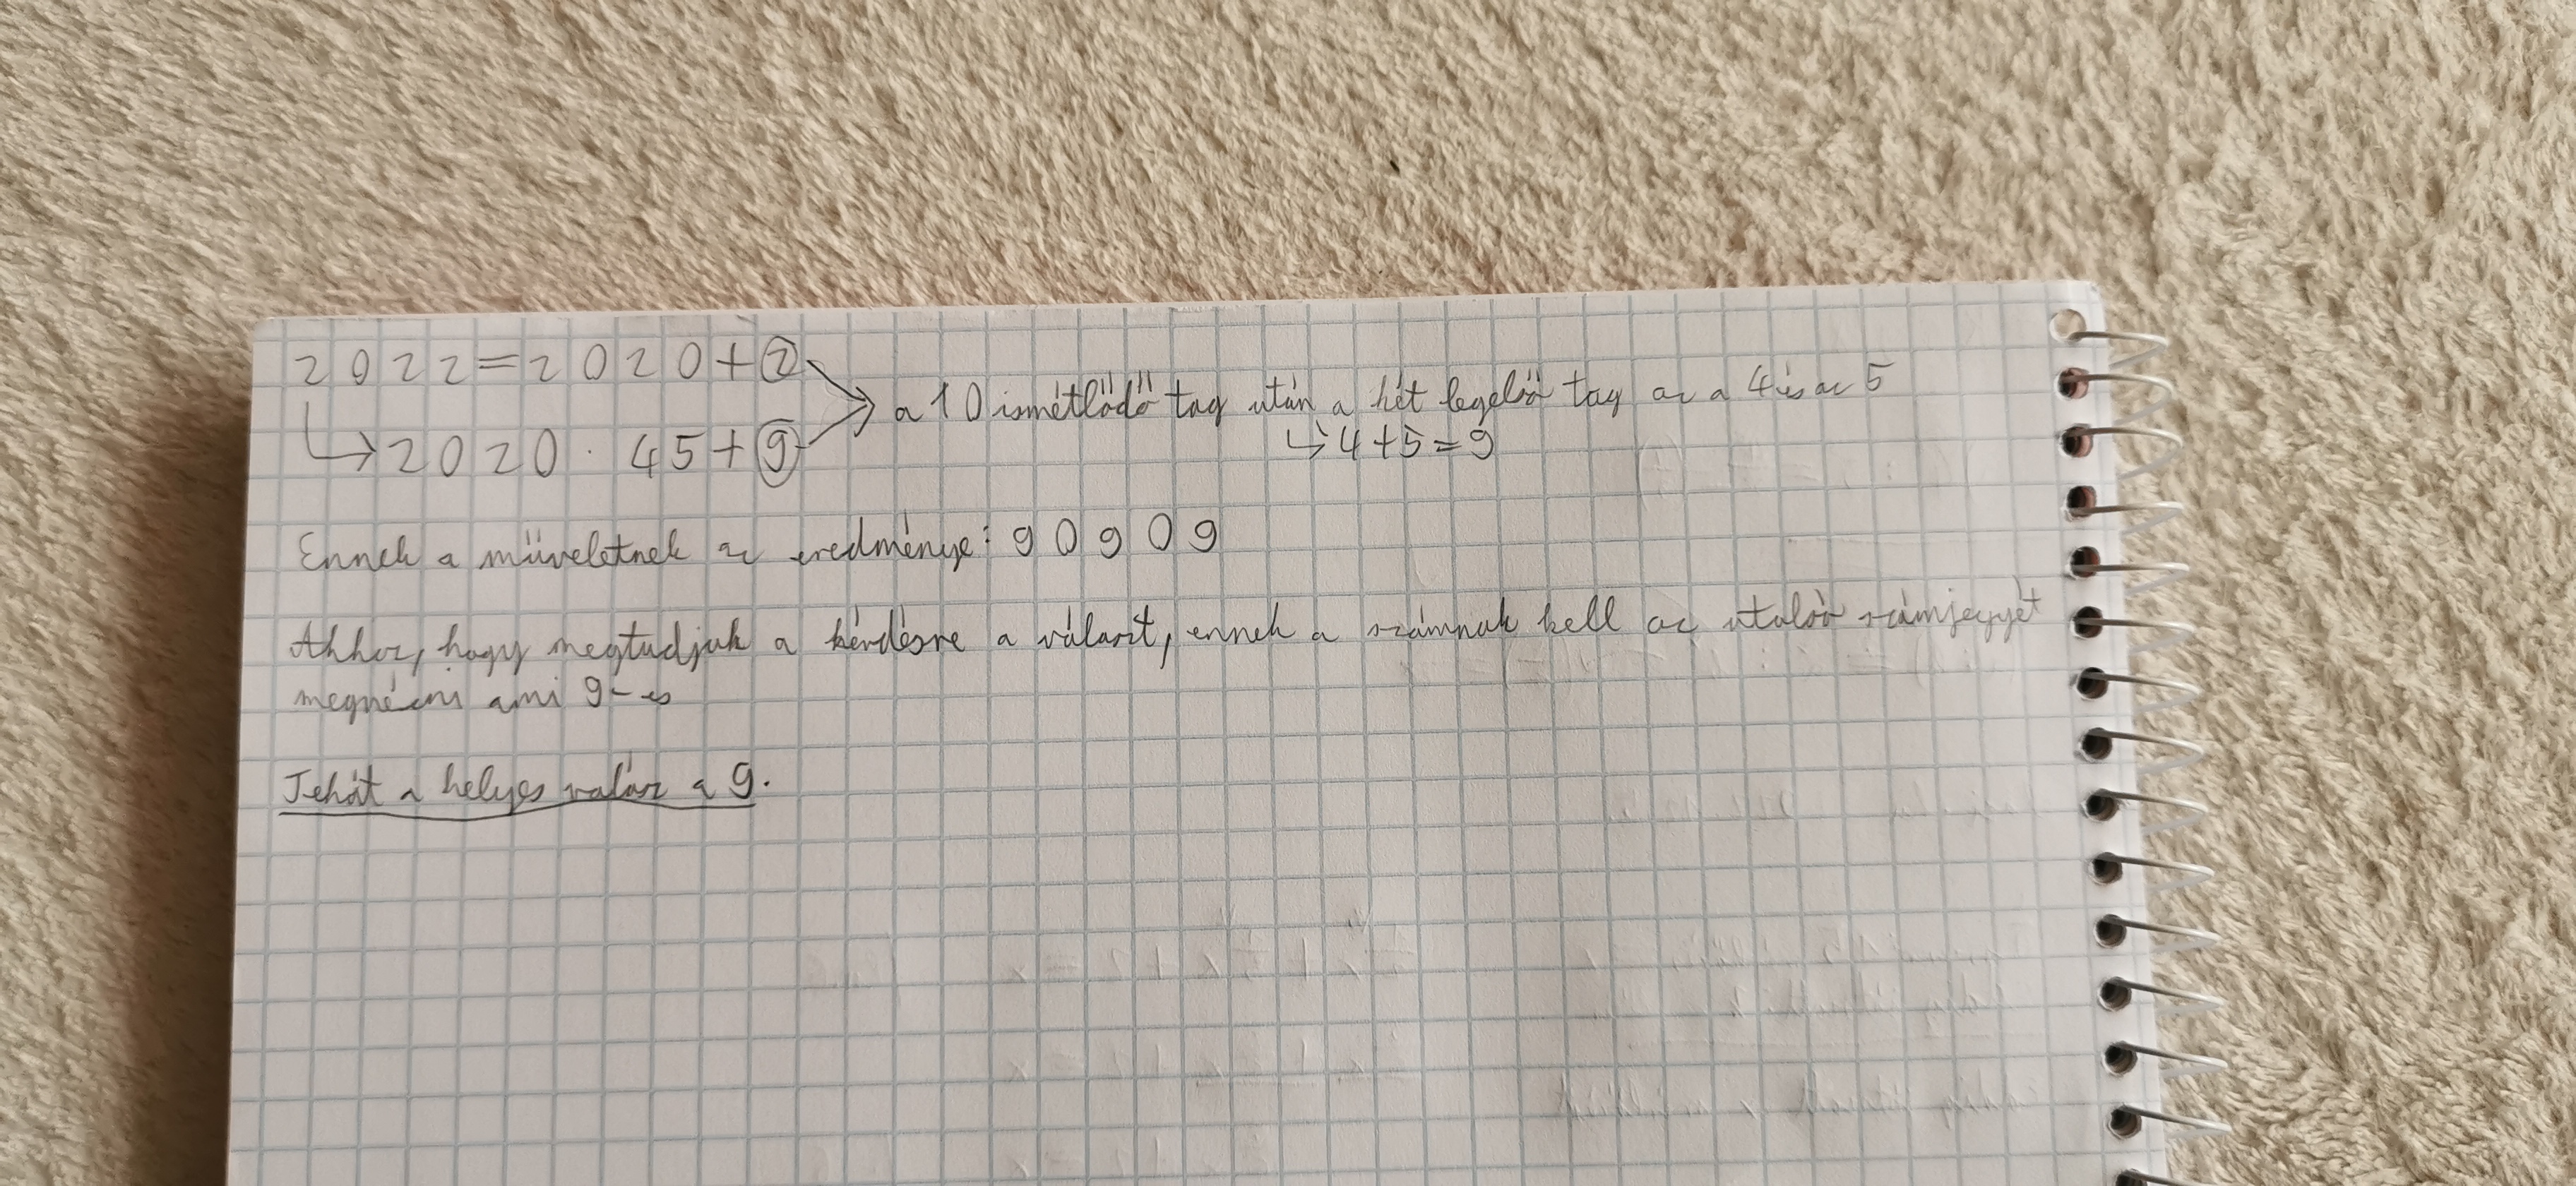 2022=2020+2
a 10 ismétlődő tag után a két legelső tag az a 4 és az 5
↳2020 · 45+9
↳4+5=9
Ennek a műveletnek az eredménye: 90909
Ahhoz, hogy megtudjuk a kérdésre a választ, ennek a számnak kell az utolsó számjegyét
megnézni ami 9-es
Tehát a helyes válasz a 9.